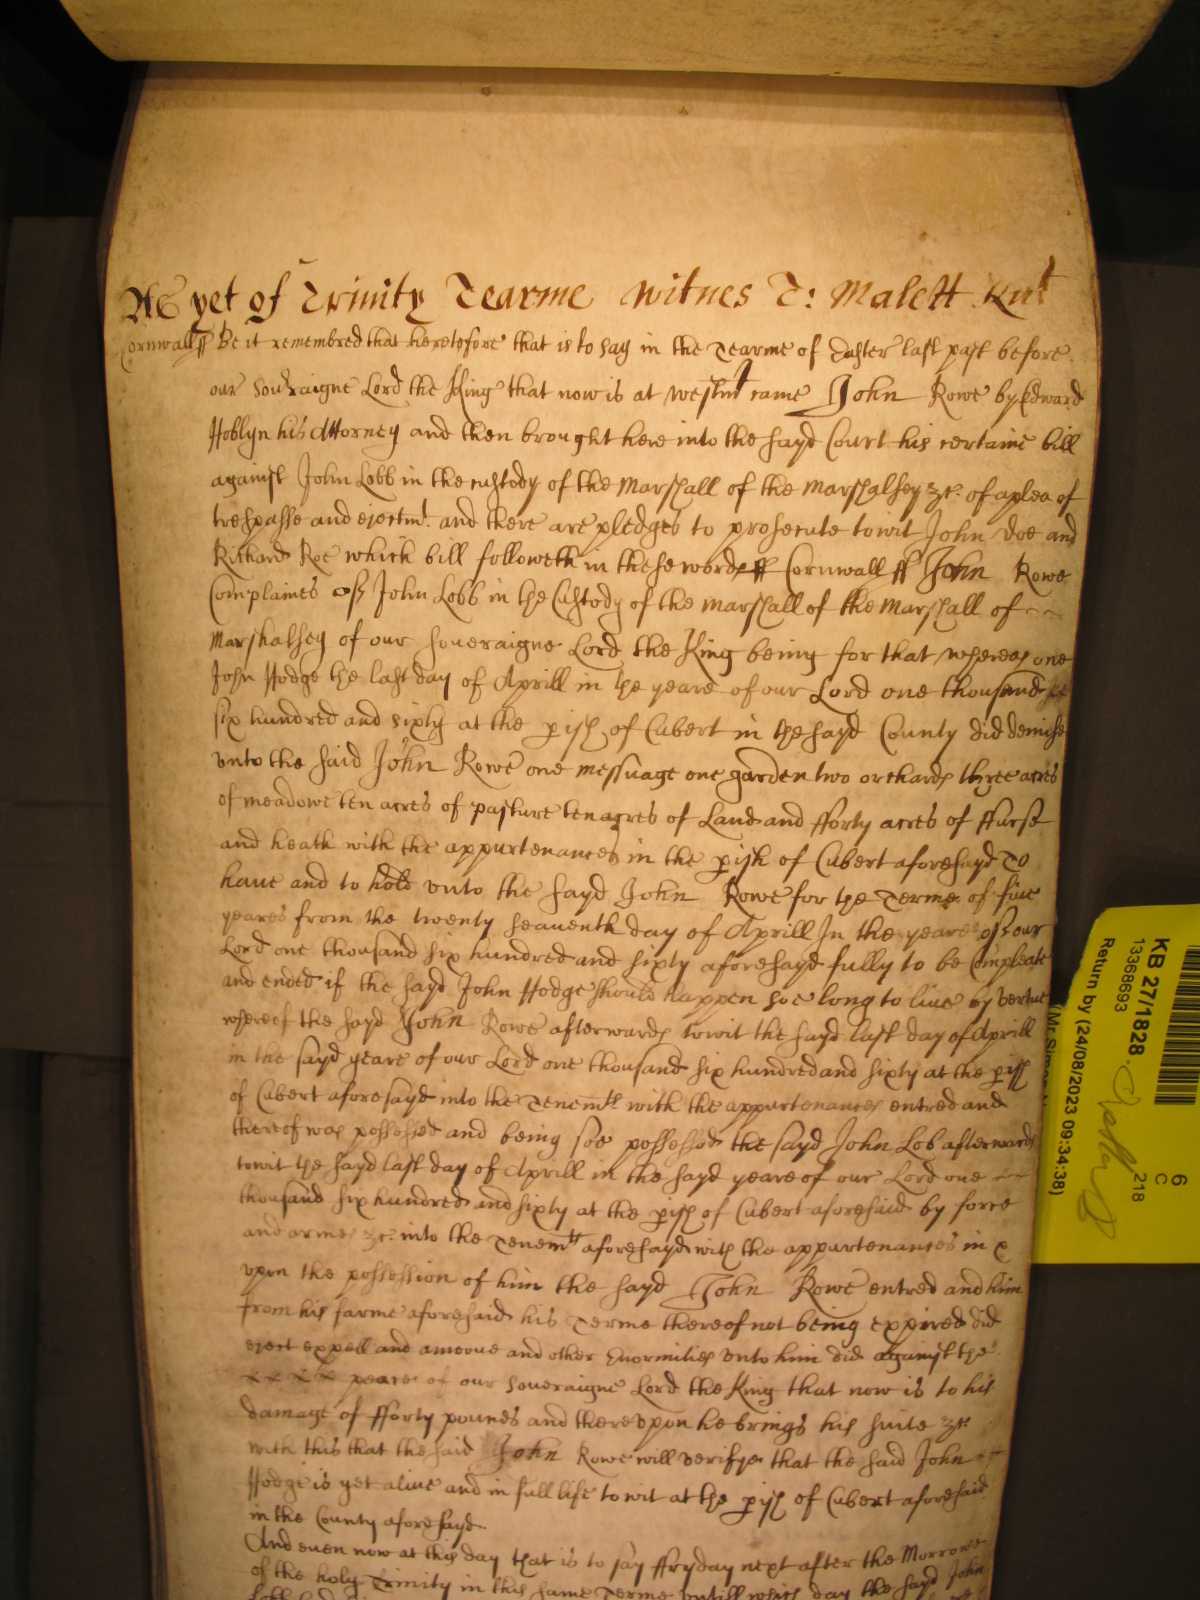 As yet of Trinity Tearme Witnes T: Malett Knt
Cornwall ff Be it remembred that heretofore that is to say in the Tearme of Easter last past before
our Soueraigne Lord the King that now is at Westmr came John Rowe by Edward
Hoblyn his Attorney and then brought here into the sayd Court his certaine bill
against John Lobb in the custody of the Marshall of the Marshalsey &c. of a plea of
trespasse and eiectmt. and there are pledges to prosecute to wit John Doe and
Richard Roe which bill followeth in these words ff Cornwall ff John Rowe
Complaines of John Lobb in the Custody of the Marshall of the Marshall of
Marshalsey of our Soueraigne Lord the King being for that whereas one
John Hodge the last day of Aprill in the yeare of our Lord one thousand
six hundred and sixty at the pish of Cubert in the sayd County did demise
vnto the said John Rowe one messuage one garden two orchards three acres
of meadowe ten acres of pasture ten acres of Land and fforty acres of ffurse
and heath with the appurtenances in the pish of Cubert aforesayd To
haue and to hold vnto the sayd John Rowe for the Terme of fiue
yeares from the twenty seauenth day of Aprill In the yeare of our
Lord one thousand six hundred and sixty aforesayd fully to be Compleate
and ended if the sayd John Hodge should happen soe long to liue by vertue
whereof the sayd John Rowe afterwards to wit the sayd last day of Aprill
in the sayd yeare of our Lord one thousand six hundred and sixty at the pish
of Cubert aforesayd into the Tenemts with the appurtenances entred and
thereof was possessed and being soe possessed the sayd John Lob afterwards
to wit the sayd last day of Aprill in the sayd yeare of our Lord one
thousand six hundred and sixty at the pish of Cubert aforesaid by force
and armes &c. into the Tenemts aforesayd with the appurtenances in
vpon the possession of him the sayd John Rowe entred and him
from his farme aforesaid his Terme thereof not being expired did
eiect expell and amoue and other Enormities vnto him did against the
peace of our Soueraigne Lord the King that now is to his
damage of fforty pounds and therevpon he brings his suite &c.
with this that the said John Rowe will verifye that the said John
Hodge is yet aliue and in full life to wit at the pish of Cubert aforesaid
in the County aforesayd.
And even now at this day that is to say ffryday next after the Morrowe
of the holy Trinity in this same Terme vntill which day the sayd John
KB 27/1828
13368693
Return by (24/08/2023 09:34:38)
6
C
218